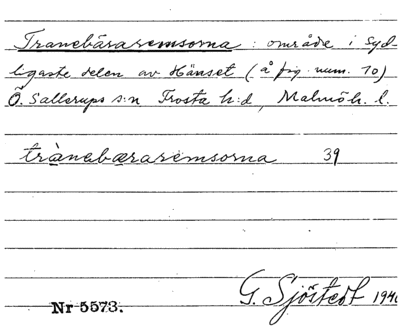 Tranebäraremsorna : område i syd-
ligaste delen av Hänset (å fig. num. 70)
Ö. Sallerups s:n Frosta h:d, Malmöh. l.
trànebæraremsorna 39
G. Sjöstedt 1940
Nr 5573.